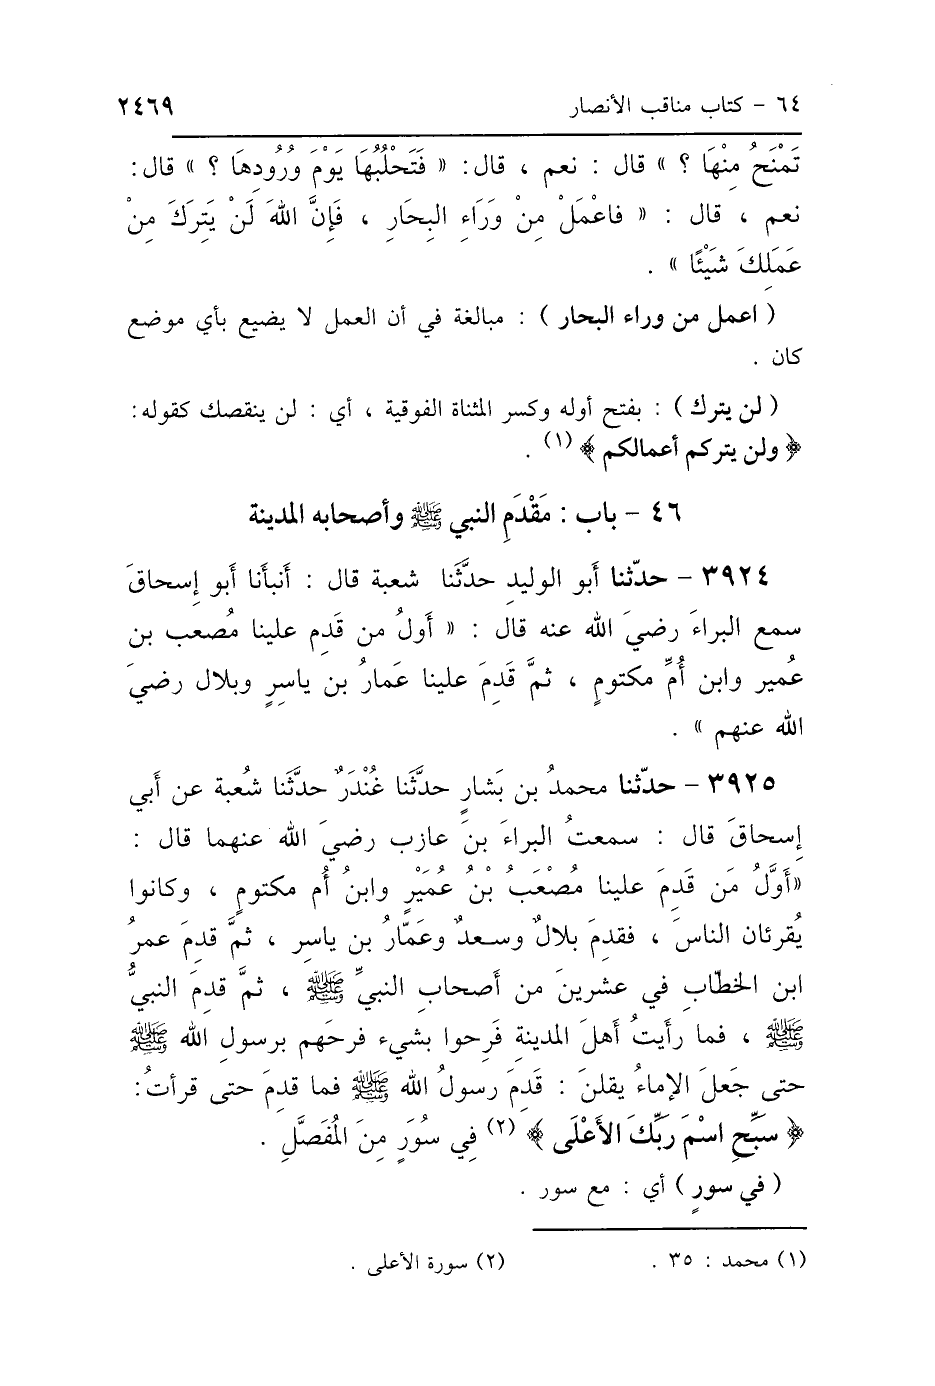 ٦٤ - كتاب مناقب الأنصار ٢٤٦٩
تَمْنَحُ مِنْهَا ؟ » قال : نعم ، قال: « فَتَحْلُبُهَا يَوْمَ وُرُودِهَا ؟ » قال:
نعم ، قال : « فاعْمَلْ مِنْ وَرَاءِ البِحَارِ ، فَإِنَّ اللهَ لَنْ يَتِرَكَ مِنْ
عَمَلِكَ شَيْئًا » .
( اعمل من وراء البحار ) : مبالغة في أن العمل لا يضيع بأي موضع
كان .
( لن يترك ) : بفتح أوله وكسر المثناة الفوقية ، أي : لن ينقصك كقوله:
﴿ ولن يتركم أعمالكم ﴾ (١) .
٤٦ - باب : مَقْدَمِ النبي ﷺ وأصحابه المدينة
٣٩٢٤ - حدّثنا أبو الوليدِ حدَّثَنا شعبة قال : أنبأنا أبو إسحاقَ
سمع البراءَ رضيَ الله عنه قال : « أولُ من قَدِم علينا مُصعب بن
عُمير وابن أُمِّ مكتومٍ ، ثمَّ قَدِمَ علينا عَمارُ بن ياسرٍ وبلال رضيَ
الله عنهم » .
٣٩٢٥ - حدّثنا محمدُ بن بَشارٍ حدَّثَنا غُنْدَرٌ حدَّثَنا شُعبة عن أبي
إسحاقَ قال : سمعتُ البراءَ بنَ عازب رضيَ الله عنهما قال :
«أَوَّلُ مَن قَدِمَ علينا مُصْعَبُ بْنُ عُمَيْرٍ وابنُ أُم مكتومٍ ، وكانوا
يُقرئان الناسَ ، فقدِمَ بلالٌ وسعدٌ وعَمّارُ بن ياسرٍ ، ثمَّ قدِمَ عمرُ
ابن الخطّابِ في عشرينَ من أصحابِ النبيِّ ﷺ ، ثمَّ قدِمَ النبيُّ
ﷺ ، فما رأيتُ أهلَ المدينةِ فَرِحوا بشيء فرحَهم برسولِ الله ﷺ
حتى جَعلَ الإماءُ يقلنَ : قَدِمَ رسولُ الله ﷺ فما قدِمَ حتى قرأتُ:
﴿ سَبِّحِ اسْمَ رَبِّكَ الأَعْلَى ﴾ (٢) فِي سُوَرٍ مِنَ المُفَصَّلِ .
( في سورٍ ) أي : مع سور .
(١) محمد : ٣٥ . (٢) سورة الأعلى .